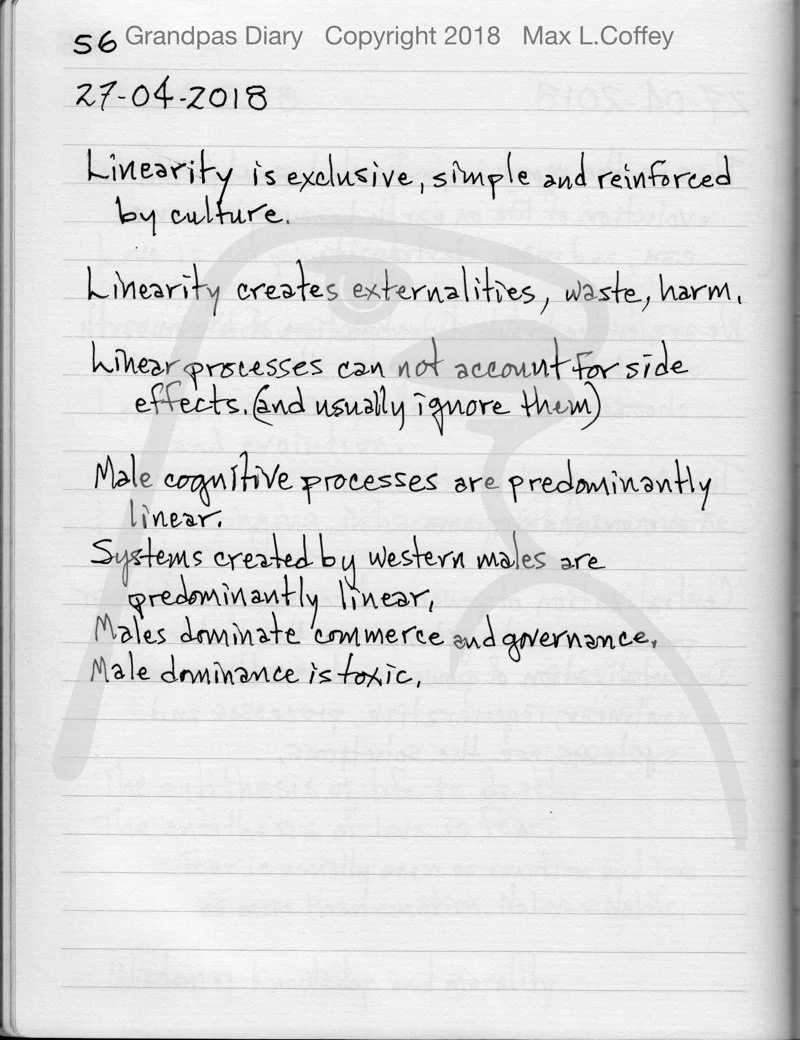 56 Grandpas Diary Copyright 2018 Max L.Coffey
27-04-2018
Linearity is exclusive, simple and reinforced
by culture.
Linearity creates externalities, waste, harm.
Linear processes can not account for side
effects. (and usually ignore them)
Male cognitive processes are predominantly
linear.
Systems created by western males are
predominantly linear,
Males dominate commerce and governance,
Male dominance is toxic,